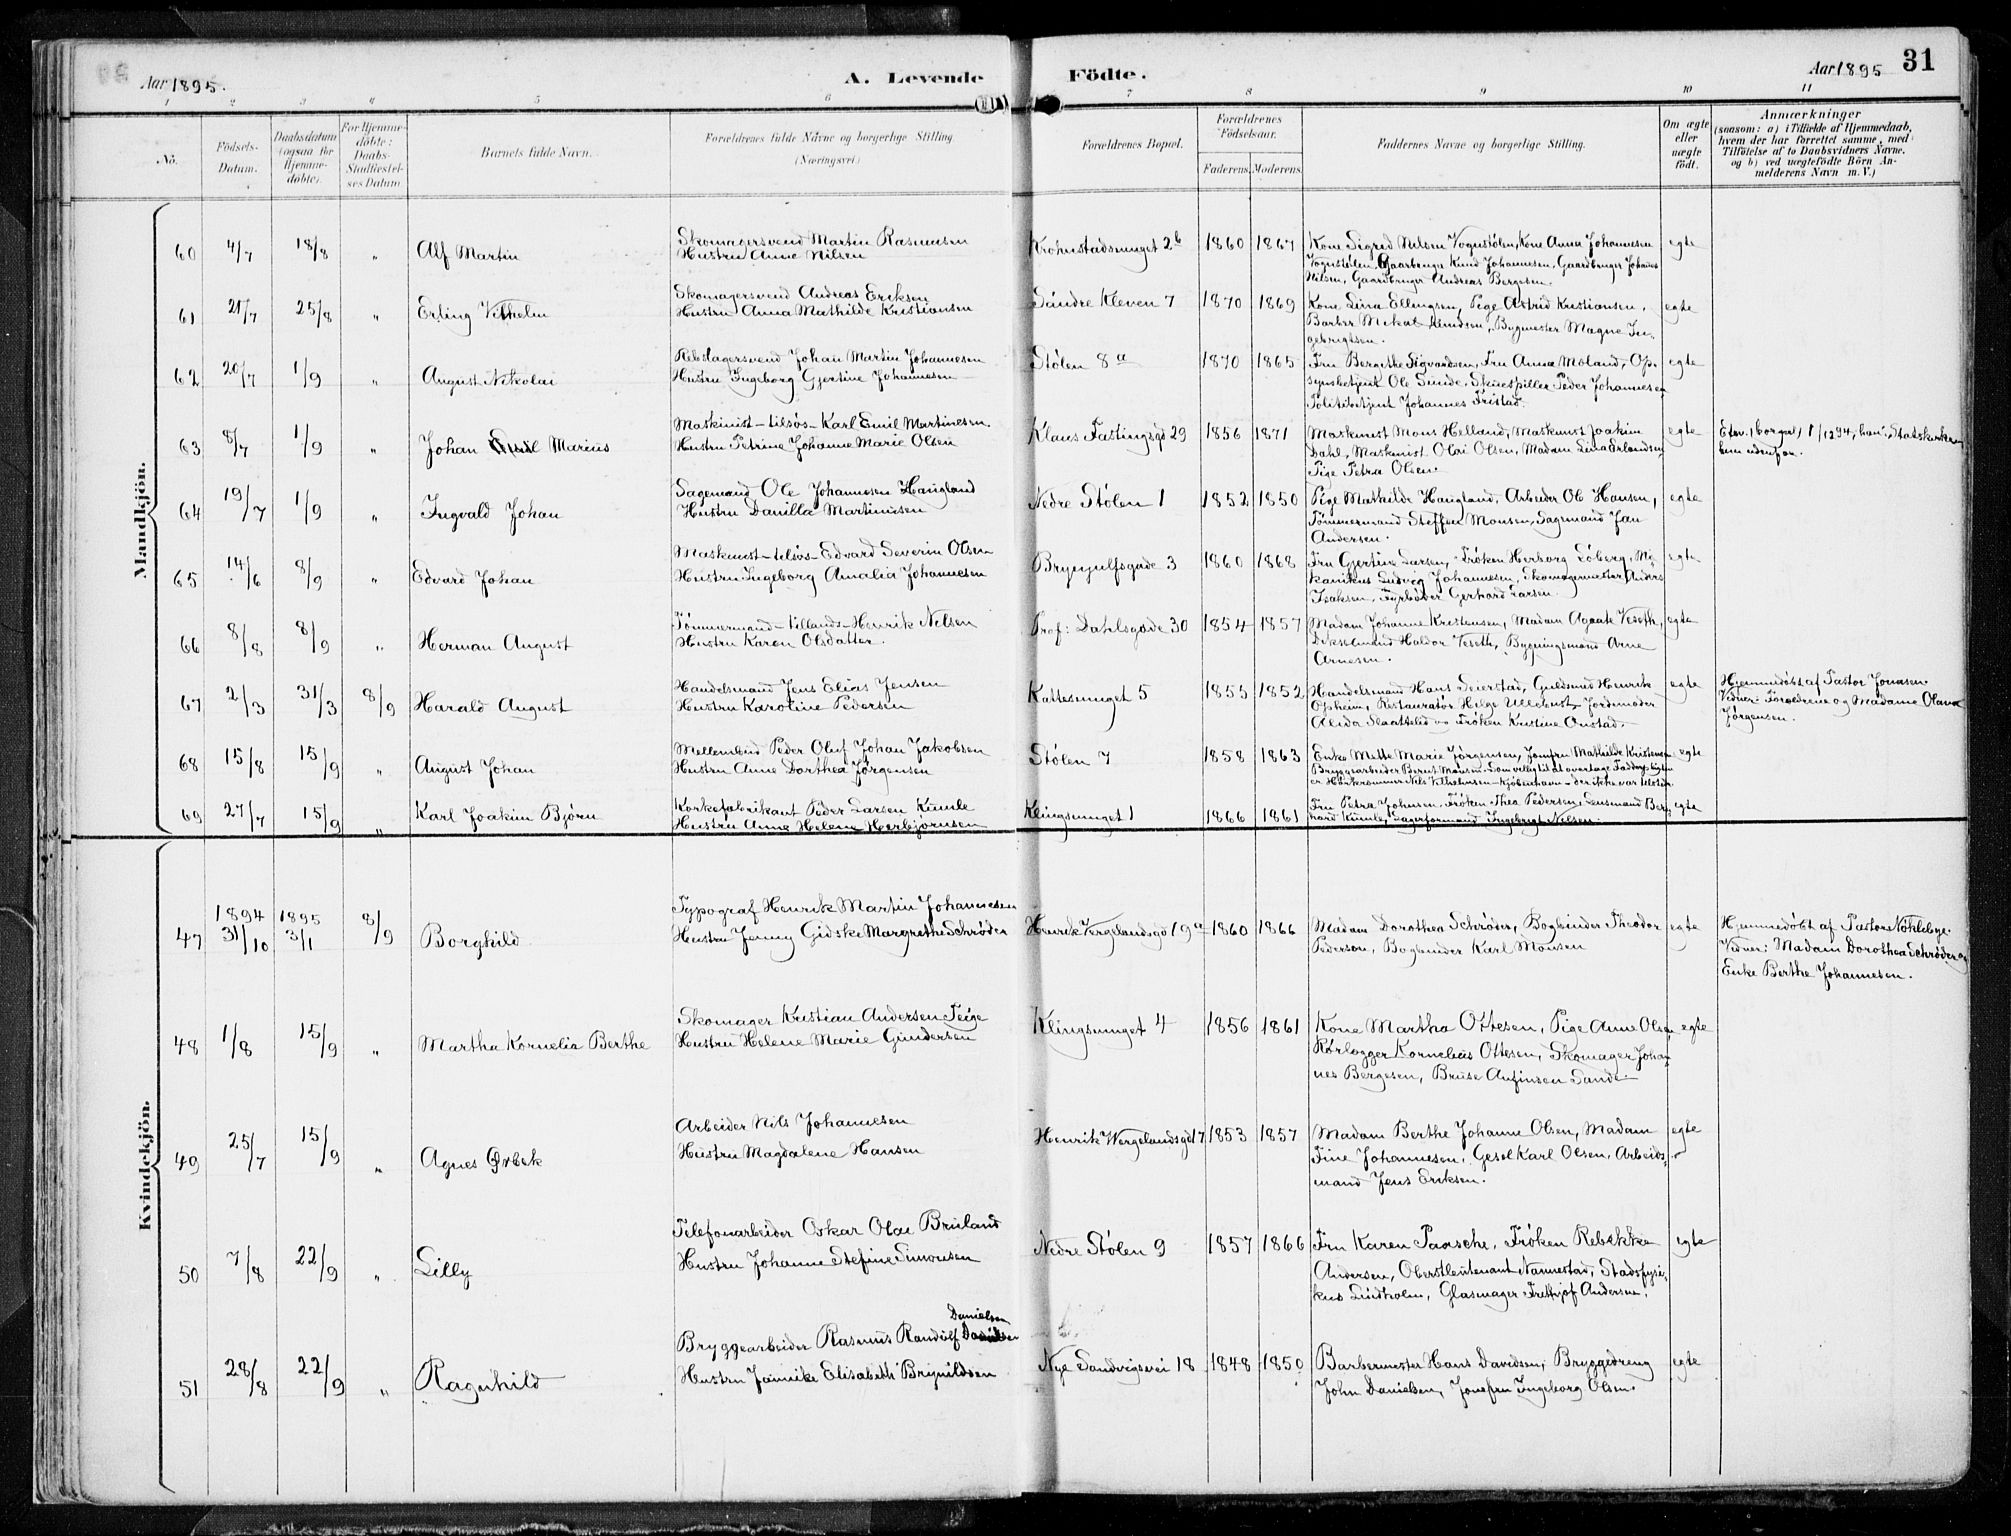 Aar 1895.
A. Levende Födte.
Aar 1895
31
1 2 3 4 5 6 7 8 9 10 11
No.
Födsels-Datum.
Daabsdatum (ogsaa for Hjemmedöbte).
For Hjemmedöbte: Daabs-Stadfæstelses Datum.
Barnets fulde Navn.
Forældrenes fulde Navne og borgerlige Stilling. (Næringsvei)
Forældrenes Bopæl.
Forældrenes Födselsaar.
Faderens. Moderens.
Faddernes Navne og borgerlige Stilling.
Om ægte eller uægte födt.
Anmærkninger
(saasom: a) i Tilfælde af Hjemmedaab,
hvem der har forrettet samme, med
Tilföielse af to Daabsvidners Navne.
og b) ved uægtefödte Börn An-
melderens Navn m. V.)
Mandkjön.
60 4/7 18/8 " Alf Martin
Skomagersvend Martin Rasmusen
Hustru Anne Nilsen
Krohnstadsmuget 2b 1860 1867
Kone Sigrid Nilsen Vognstølen, Kone Anna Johannesen
Vognstølen, Gaardbruger Knud Johannesen, Gaardbruger Johans
Nilsen, Gaardbruger Andreas Bergesen.
egte
61 21/7 25/8 " Erling Vilhelm
Skomagersvend Andreas Eriksen
Hustru Anna Mathilde Kristiansen
Søndre Kleven 7 1870 1869
Kone Lina Ellingsen, Pige Astrid Kristiansen,
Barber Mikal Knudsen, Bygmester Magne In-
gebrigtsen.
egte
62 20/7 1/9 " August Nikolai
Rebslagersvend Johan Martin Johannesen
Hustru Ingeborg Gjertine Johannesen
Stølen 8a 1870 1865
Fru Bergithe Sigvardsen, Fru Anna Moland, Op-
synsbetjent Ole Sunde, Skuespiller Peder Johannesen
Politibetjent Johannes Fristad.
egte
63 8/7 1/9 " Johan Marius
Maskinist - tilsøs - Karl Emil Martinsen.
Hustru Petrine Johanne Marie Olsen
Klaus Fastingsgd 29 1856 1871
Maskinist Mons Helland, Maskinist Joakim
Dahl, Maskinist Olai Olsen, Madam Lina Erlandsen,
Pige Petra Olsen.
egte
64 19/7 1/9 " Ingvald Johan
Sagemand Ole Johannesen Haugland
Hustru Danilla Martinusen
Nedre Stølen 1 1852 1850
Pige Mathilde Haugland, Arbeider Ole Hansen,
Tømmermand Steffen Monsen, Sagemand Jan
Andersen.
egte
65 14/6 8/9 " Edvard Johan
Maskinist - tilsøs - Edvard Severin Olsen
Hustru Ingeborg Amalia Johannesen
Brynjulfsgade 3 1860 1868
Fru Gjertine Larsen, Frøken Herborg Loberg, Me-
kanikus Ludvig Johannesen, Skomagermester Anders
Isaksen, Fyrbøder Gerhard Larsen.
egte
66 8/8 8/9 " Herman August
Tømmermand - tillands - Henrik Nilsen
Hustru Karen Olsdatter.
Prof: Dahlsgade 30 1854 1857
Madam Johanne Kristensen, Madam Agate Veseth,
Dikselmand Haldor Veseth, Bygningsmand Arne
Arnesen.
egte
67 2/3 31/3 8/9 Harald August
Handelsmand Jens Elias Jensen
Hustru Karoline Pedersen
Kattesmuget 5 1855 1852
Handelsmand Hans Seierstad, Guldsmed Henrik
Opheim, Restauratør Helge Ulledust, Jordemoder
Alida Slaattelid og Frøken Kristine Onstad.
egte
Hjemmedøbt af Pastor Jonassen.
Vidner: Forældrene og Madame Olava
Jørgensen.
68 15/8 15/9 " August Johan
Mellembud Peder Oluf Johan Jakobsen
Hustru Anne Dorthea Jørgensen
Stølen 7 1858 1863
Enke Mette Marie Jørgensen, Jomfru Mathilde Kristensen
Bryggearbeider Bernt Monsen. Som villig til at overtage Fadderpligten
er Hørkræmmer Nils Vilhelmsen - Kjøbenhavn - der ikke var tilstede
egte
69 27/7 15/9 " Karl Joakim Bjørn
Korkefabrikant Peder Larsen Kumle
Hustru Anne Helene Herbjørnsen
Klingsmuget 1 1866 1861
Fru Petra Johnsen, Frøken Thea Pedersen, Lensmand Bern-
hard Kumle, Lagerformand Ingebrigt Nilsen.
egte
Kvindekjön.
47 1894 31/10 1895 3/1 8/9 Borghild
Typograf Henrik Martin Johannesen
Hustru Jenny Gidske Margrethe Schrøder
Henrik Vergelandsgd 19a 1860 1866
Madam Dorothea Schrøder, Bogbinder Theodor
Pedersen, Bogbinder Karl Monsen
egte
Hjemmedøbt af Pastor Nøkleby.
Vidner: Madam Dorothea Schrøder og
Enke Berthe Johannesen.
48 1/8 15/9 " Martha Kornelia Berthe
Skomager Kristian Andersen Teige
Hustru Helene Marie Gundersen
Klingsmuget 4 1856 1861
Kone Martha Ottesen, Pige Anne Olsen,
Rørlægger Kornelius Ottesen, Skomager Johan-
nes Bergesen, Bruse Anfinsen Sande.
egte
49 25/7 15/9 " Agnes Ørbek
Arbeider Nils Johannesen
Hustru Magdalene Hansen
Henrik Wergelandsgd 17 1853 1857
Madam Berthe Johanne Olsen, Madam
Fine Johannesen, Gesel Karl Olsen, Arbeids-
mand Jens Eriksen.
egte
50 7/8 22/9 " Lilly
Telefonarbeider Oskar Olai Bruland
Hustru Johanne Stefine Simonsen
Nedre Stølen 9 1857 1866
Fru Karen Paasche, Frøken Rebekke
Andersen, Oberstleutenant Nannestad, Stadsfysi-
kus Lindholm, Glasmager Frithjof Andersen.
egte
51 28/8 22/9 " Ragnhild
Danielsen
Bryggearbeider Rasmus Randulf
Hustru Jannike Elisabeth Brynildsen
Nye Sandvigsvei 18 1848 1850
Barbermester Hans Davidsen, Bryggedreng
John Danielsen, Jomfru Ingeborg Olsen.
egte